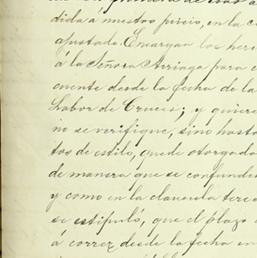 dida á nuestro juicio, en la
apartado. Encargan los here
á la Señora Arriaga para
mente desde la fecha de la
Labor de Cruces; y quiere
no se verifique, sino hasta
tos de estilo, quede otorgada
de manera que se confunden
y como en la clausula terce
se estipuló, que el plazo
á correr desde la fecha en